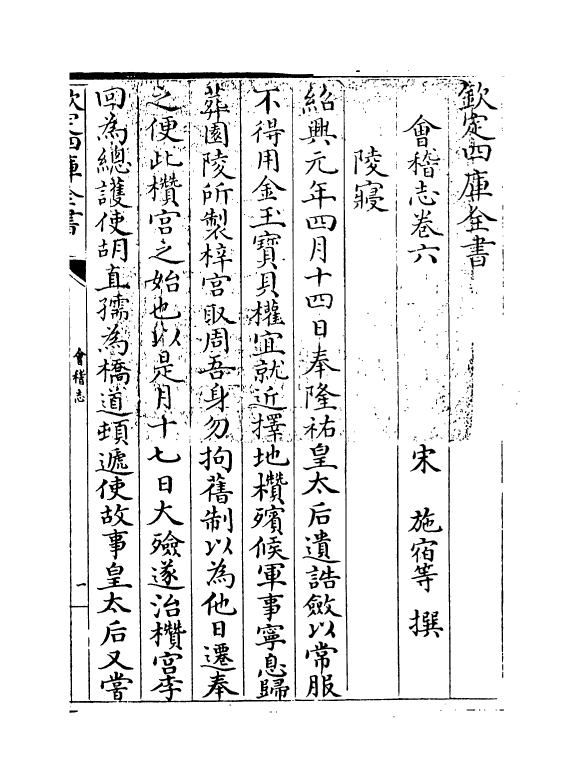 欽定四庫全書
會稽志卷六　　　　　宋　施宿等　撰
陵寢
紹興元年四月十四日奉隆祐皇太后遺誥斂以常服
不得用金玉寶貝權宜就近擇地欑殯候軍事寧息歸
葬園陵所製梓宮取周吾身勿拘舊制以為他日遷奉
之便此欑宮之始也以是月十七日大殮遂治欑宮李
回為總護使胡直孺為橋道頓遞使故事皇太后又當
欽定四庫全書
會稽志
一